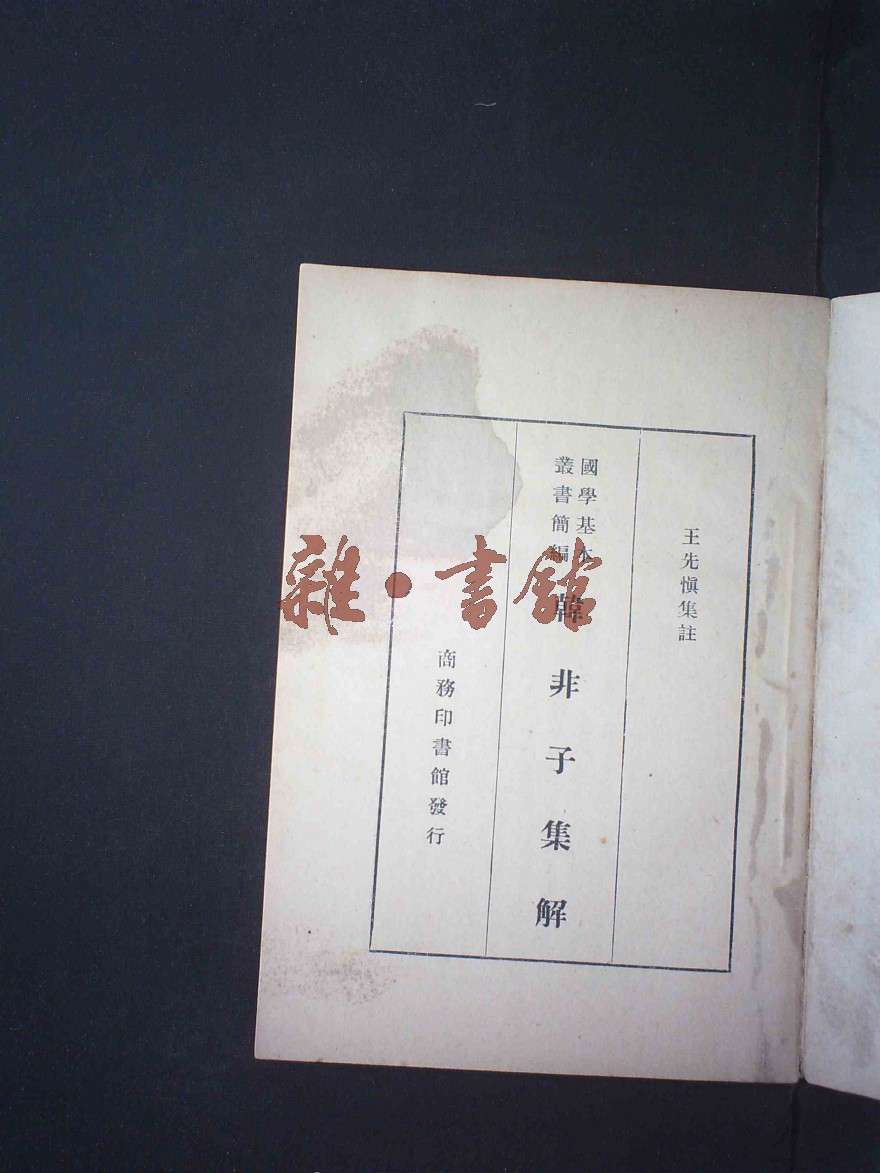 王先慎集註
國學基本
叢書簡編
韓非子集解
商務印書館發行
雜·書館